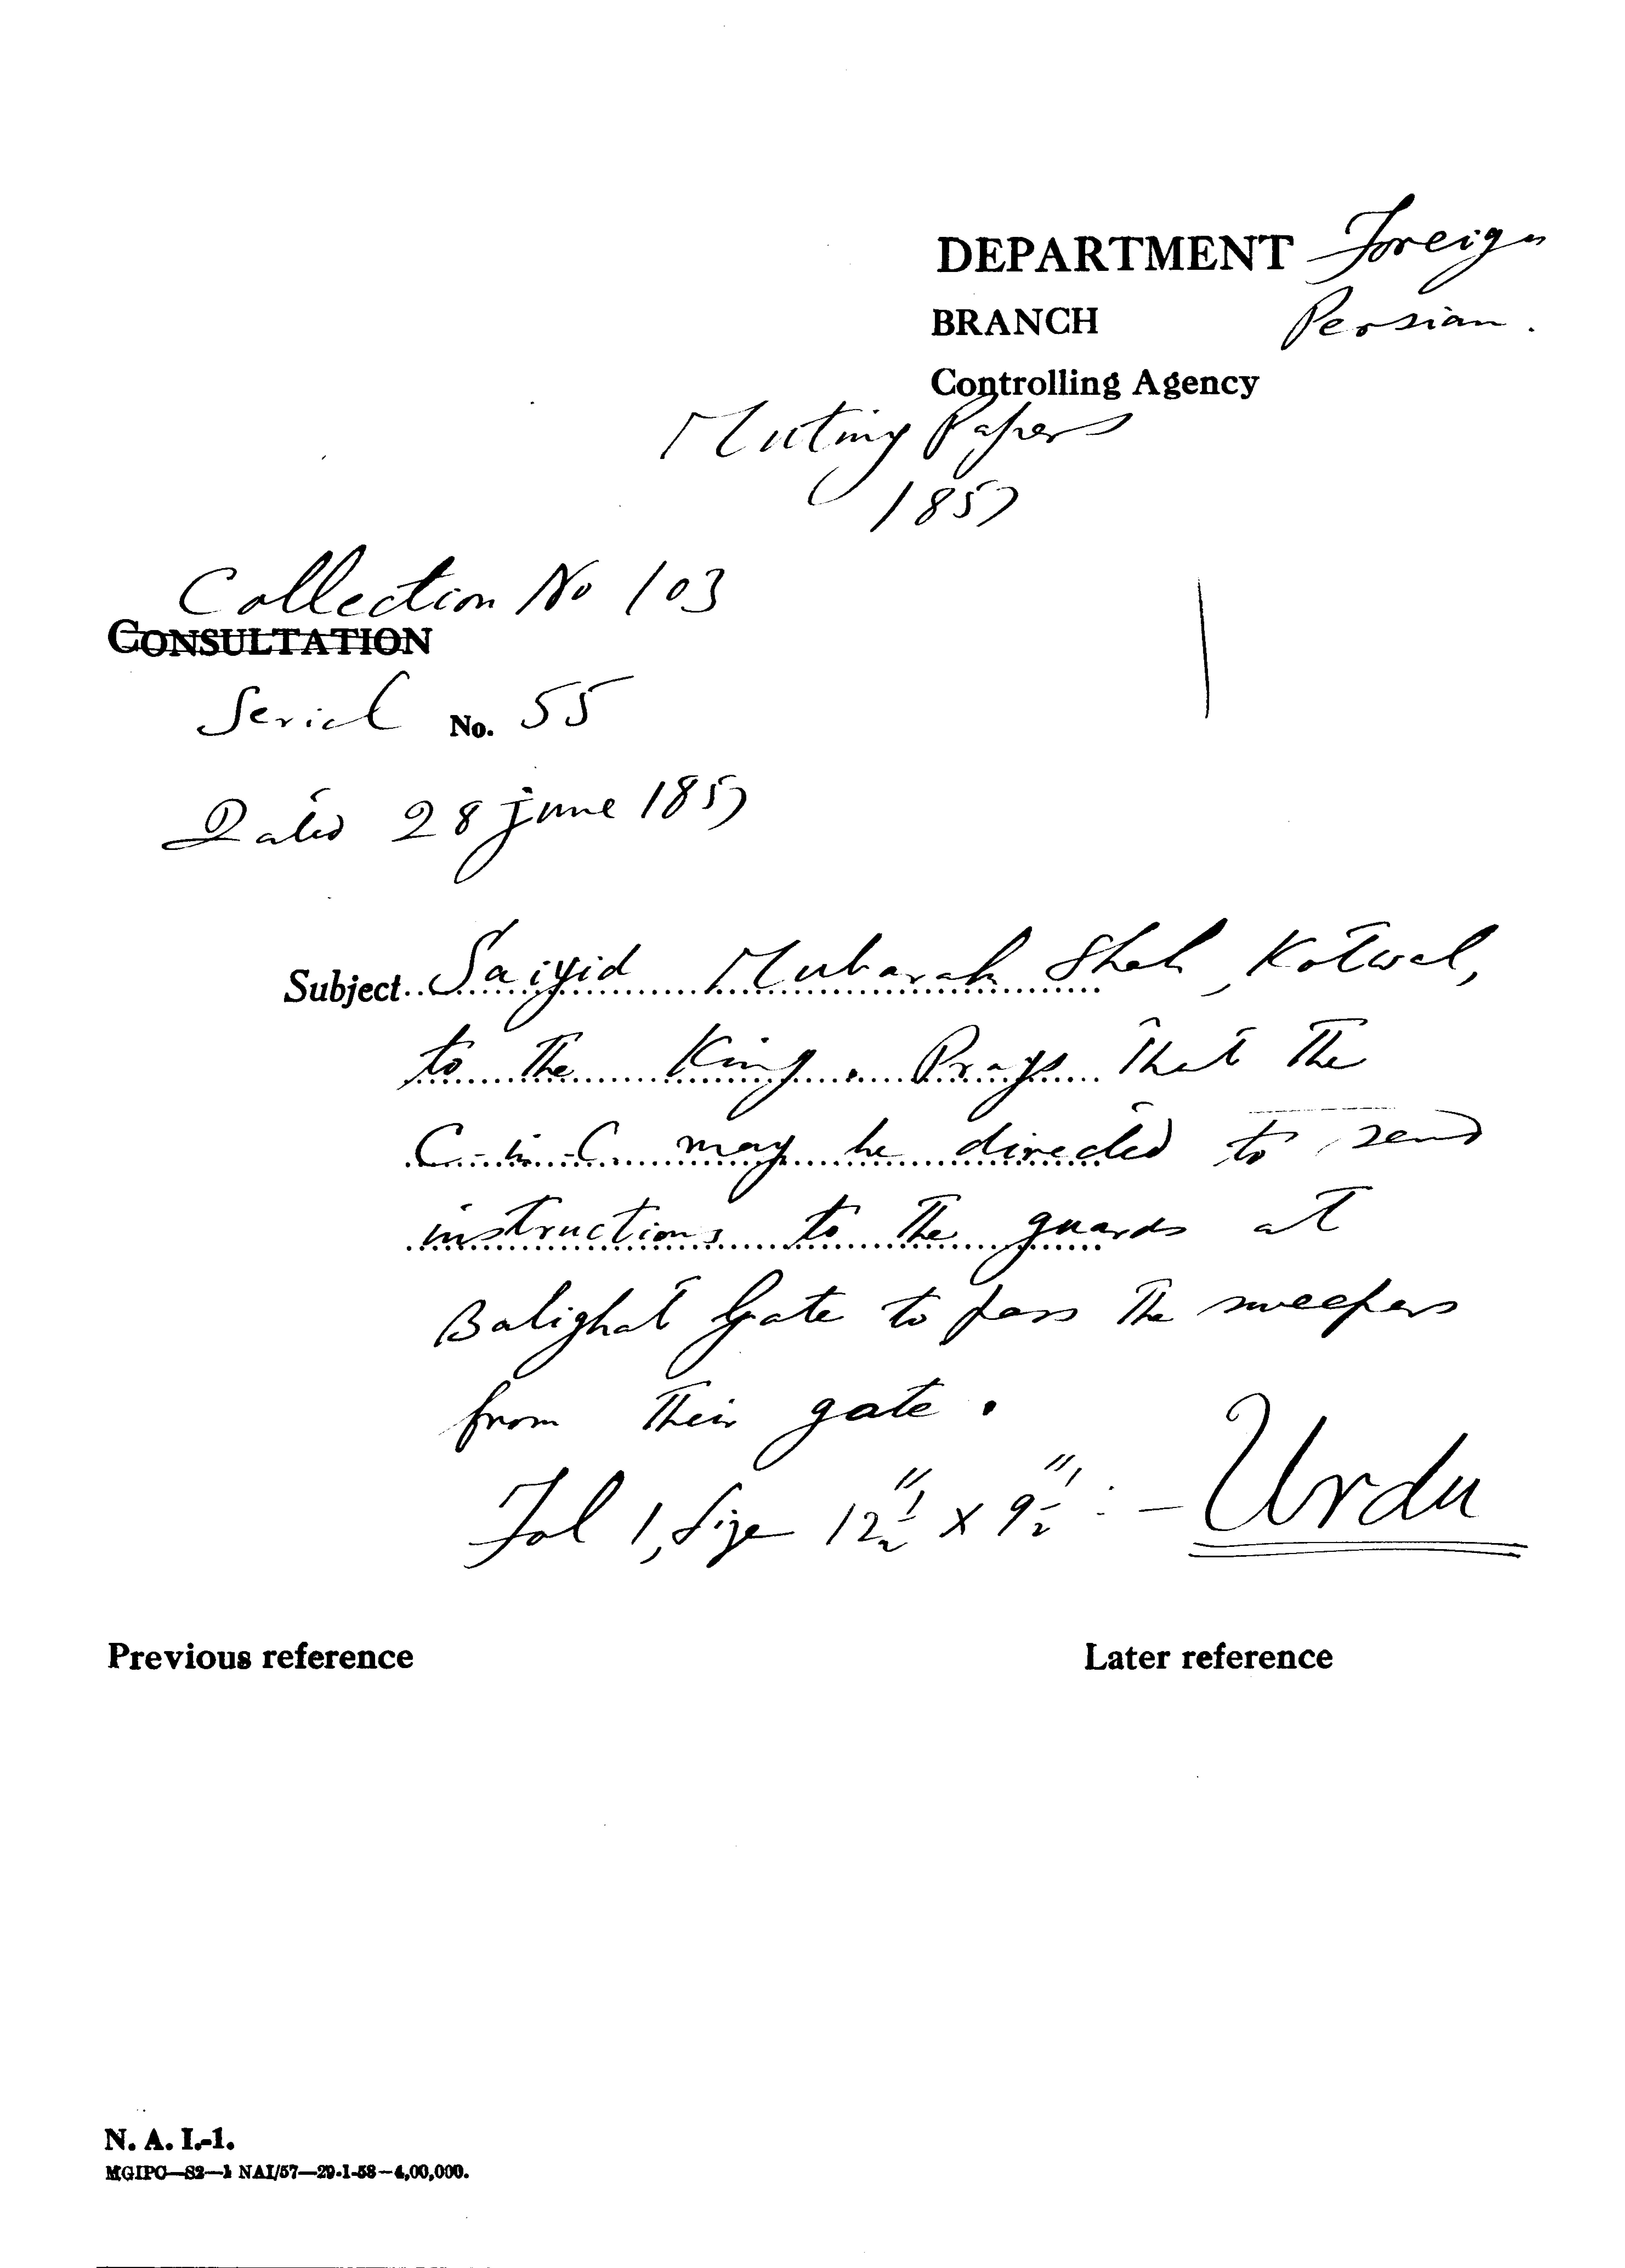 DEPARTMENT Foreign
BRANCH Persian.
Controlling Agency
Mutiny Papers
1857
Collection No 103
CONSULTATION
Serial No. 55
Dated 28 June 1857
Subject Saiyid Mubarak Shah, Kotwal,
to the King. Prays that the
C-in-C. may be directed to send
instructions to the guards at
Balighat Gate to pass the sweepers
from their gate.
Fol 1, Size 12½" x 9½" :- Urdu
Previous reference Later reference
N. A. I.-1.
MGIPC—S2—1 NAI/57—29-1-58—4,00,000.